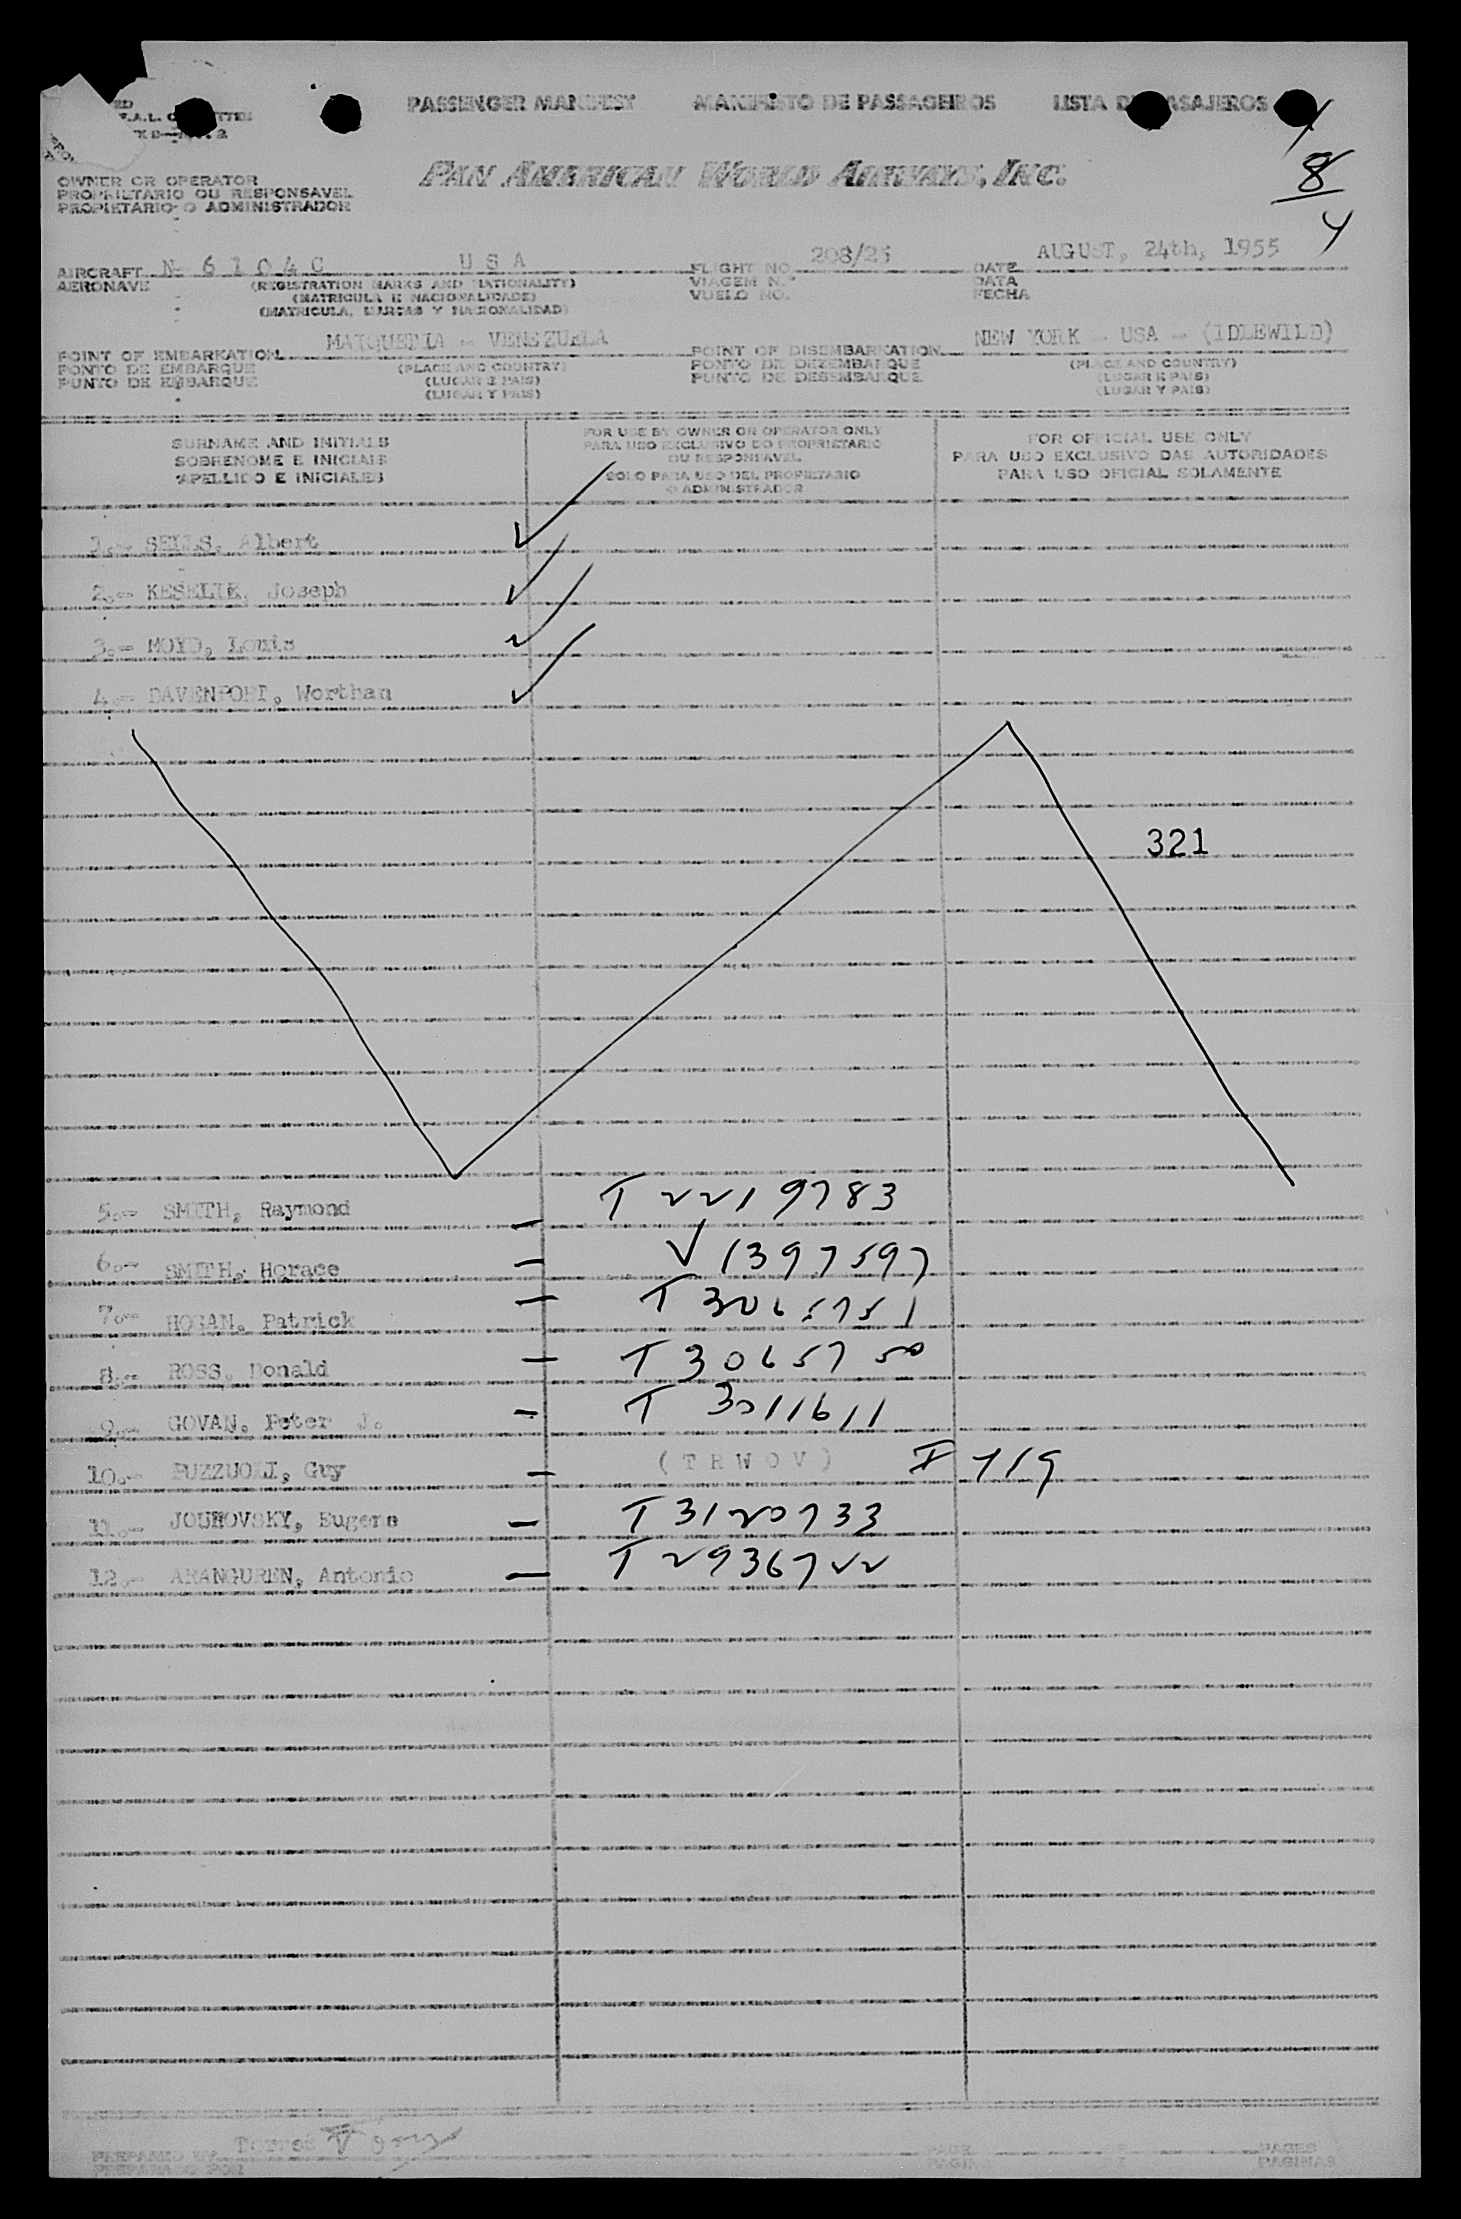 PASSENGER MANIFEST MANIFESTO DE PASSAGEIROS LISTA DE PASAJEROS
PAN AMERICAN WORLD AIRWAYS, INC.
8
4
OWNER OR OPERATOR
PROPRIETARIO OU RESPONSAVEL
PROPIETARIO O ADMINISTRADOR
AIRCRAFT N- 6 1 0 4 C U S A FLIGHT NO. 208/25 DATE AUGUST, 24th, 1955
AERONAVE (REGISTRATION MARKS AND NATIONALITY) VIAGEM N.º DATA
(MATRICULA E NACIONALIDADE) VUELO NO. FECHA
(MATRICULA, MARCAS Y NACIONALIDAD)
POINT OF EMBARKATION MAIQUETIA - VENEZUELA POINT OF DISEMBARKATION NEW YORK - USA - (IDLEWILD)
PONTO DE EMBARQUE (PLACE AND COUNTRY) PONTO DE DEZEMBARQUE (PLACE AND COUNTRY)
PUNTO DE EMBARQUE (LUGAR E PAIS) PUNTO DE DESEMBARQUE (LUGAR E PAIS)
(LUGAR Y PAIS) (LUGAR Y PAIS)
SURNAME AND INITIALS
SOBRENOME E INICIAIS
APELLIDO E INICIALES
FOR USE BY OWNER OR OPERATOR ONLY
PARA USO EXCLUSIVO DO PROPRIETARIO
OU RESPONSAVEL
SOLO PARA USO DEL PROPIETARIO
O ADMINISTRADOR
FOR OFFICIAL USE ONLY
PARA USO EXCLUSIVO DAS AUTORIDADES
PARA USO OFICIAL SOLAMENTE
1.- SELLS, Albert
2.- KESELIK, Joseph
3.- MOYD, Louis
4.- DAVENPORT, Worthan
321
5.- SMITH, Raymond T 2219783
6.- SMITH, Horace V 1397597
7.- HOGAN, Patrick T 3065751
8.- ROSS, Donald T 3065750
9.- GOVAN, Peter J. T 3011611
10.- PUZZUOLI, Guy ( T R W O V ) I 719
11.- JOUHOVSKY, Eugene T 3120733
12.- ARANGUREN, Antonio T 2936722
PREPARED BY Torres
PREPARADO POR
PAGE OF PAGES
PAGINA DE PAGINAS